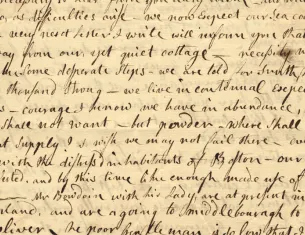 difficulties arise - we now Expect our Sea co
very next Letter I write will inform you that
ay from our yet quiet cottage - necessity w
some desperate steps - we are told for Truth
thousand strong - we live in continual Expec
- courage I know we have in abundance
shall not want - but powder - where shall
nt supply I wish we may not fail there - eve
with the distressd inhabitants of Boston - our
and by this time like enough made use of
Mr Bowdoin with his Lady, are at present in
land, and are a going to middleborough to
oliver - the poor Gentleman is so low that